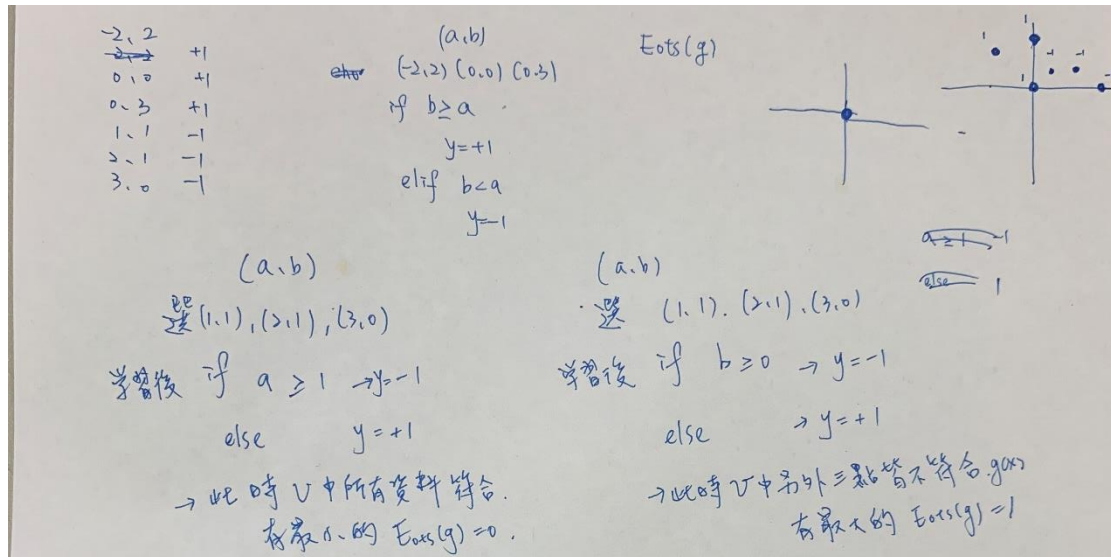 -2, 2
+1
0, 0 +1
0, 3 +1
1, 1 -1
2, 1 -1
3, 0 -1
(a,b)
(-2,2) (0,0) (0,3)
if b≥a
y=+1
elif b<a
y=-1
Eots(g)
1
1
-1
-1
1
-1
a≥1 -1
else 1
(a、b)
選(1,1), (2,1), (3,0)
学習後 if a ≥ 1 →y=-1
else y=+1
→此時U中所有資料符合.
有最小的 Eots(g)=0.
(a、b)
選 (1,1). (2,1). (3,0)
学習後 if b≥0 → y=-1
else → y=+1
→此時U中另外三點皆不符合g(x)
有最大的 Eots(g)=1